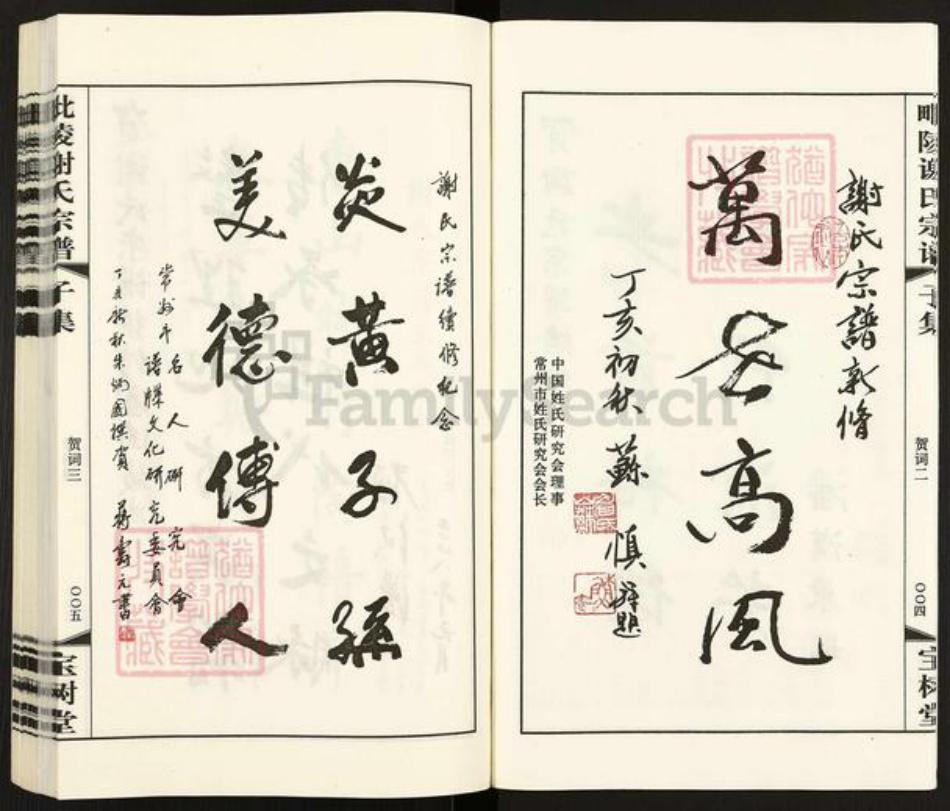 毗陵谢氏宗谱
子集
贺词二
〇〇四
宝树堂
謝氏宗譜新修
萬世高風
丁亥初秋 蘇慎 題
中国姓氏研究会理事
常州市姓氏研究会会长
謝氏宗譜續修紀念
炎黃子孫
美德傳人
常州市名人研究會
譜牒文化研究委員會
丁亥新秋朱炳國撰賀 蔣壽元書
毗陵谢氏宗谱
子集
贺词三
〇〇五
宝树堂
FamilySearch